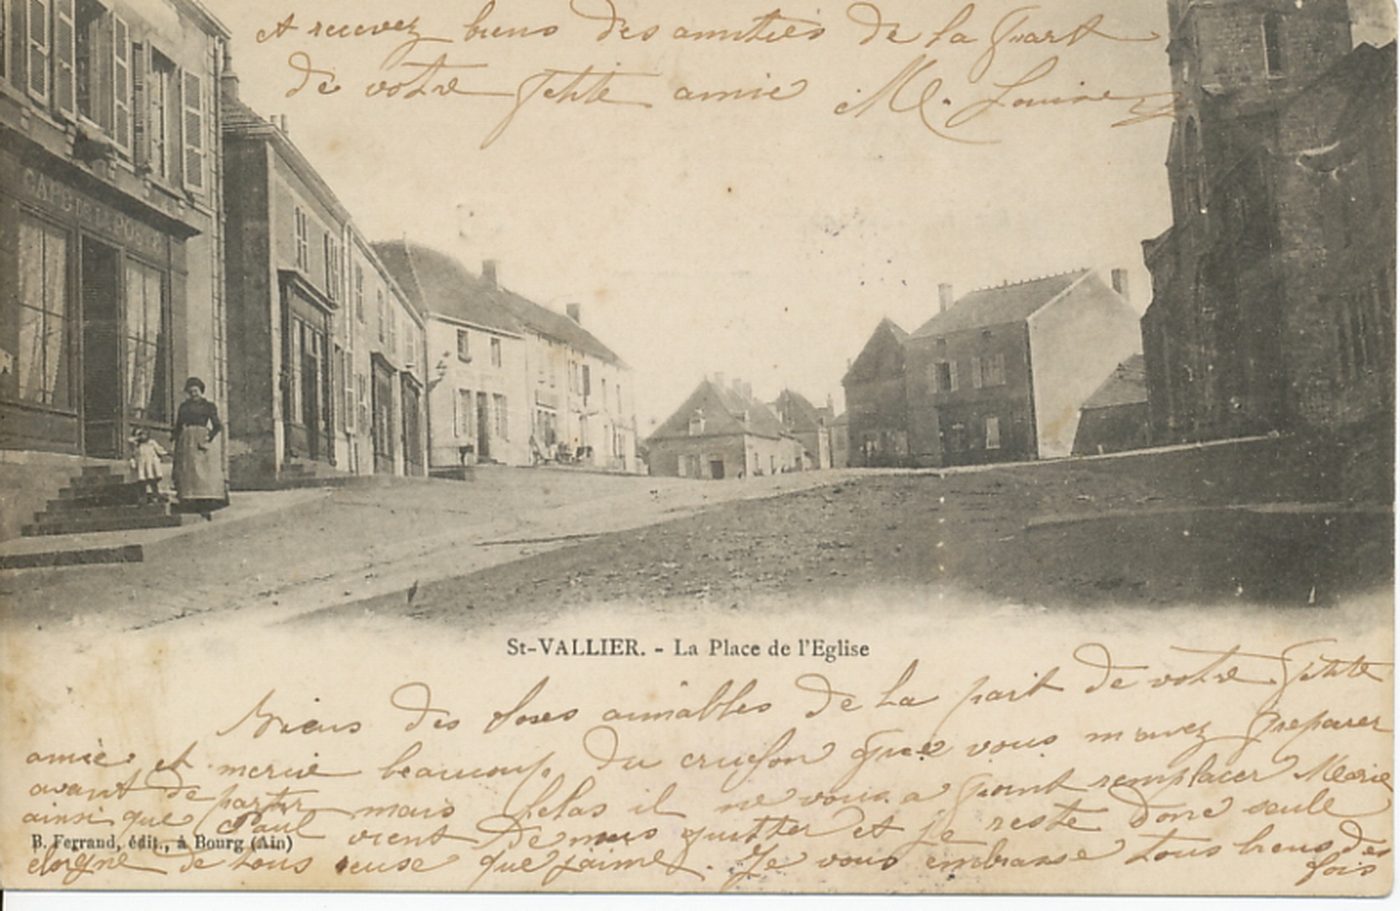 et recevez biens des amitiés de la part
de votre petite amie M. Louise
CAFE DE LA
St-VALLIER. - La Place de l'Eglise
Biens des choses aimables de la part de votre petite
amie et mercie beaucoup du que vous mavez préparer
avant de partir mais helas il ne vous a point remplacer Marie
ainsi que Paul vient de mes quitter et je reste donc seule
B. Ferrand, édit., à Bourg (Ain)
eloigné de tous ceuse que jaime. Je vous embrasse tous biens des
fois